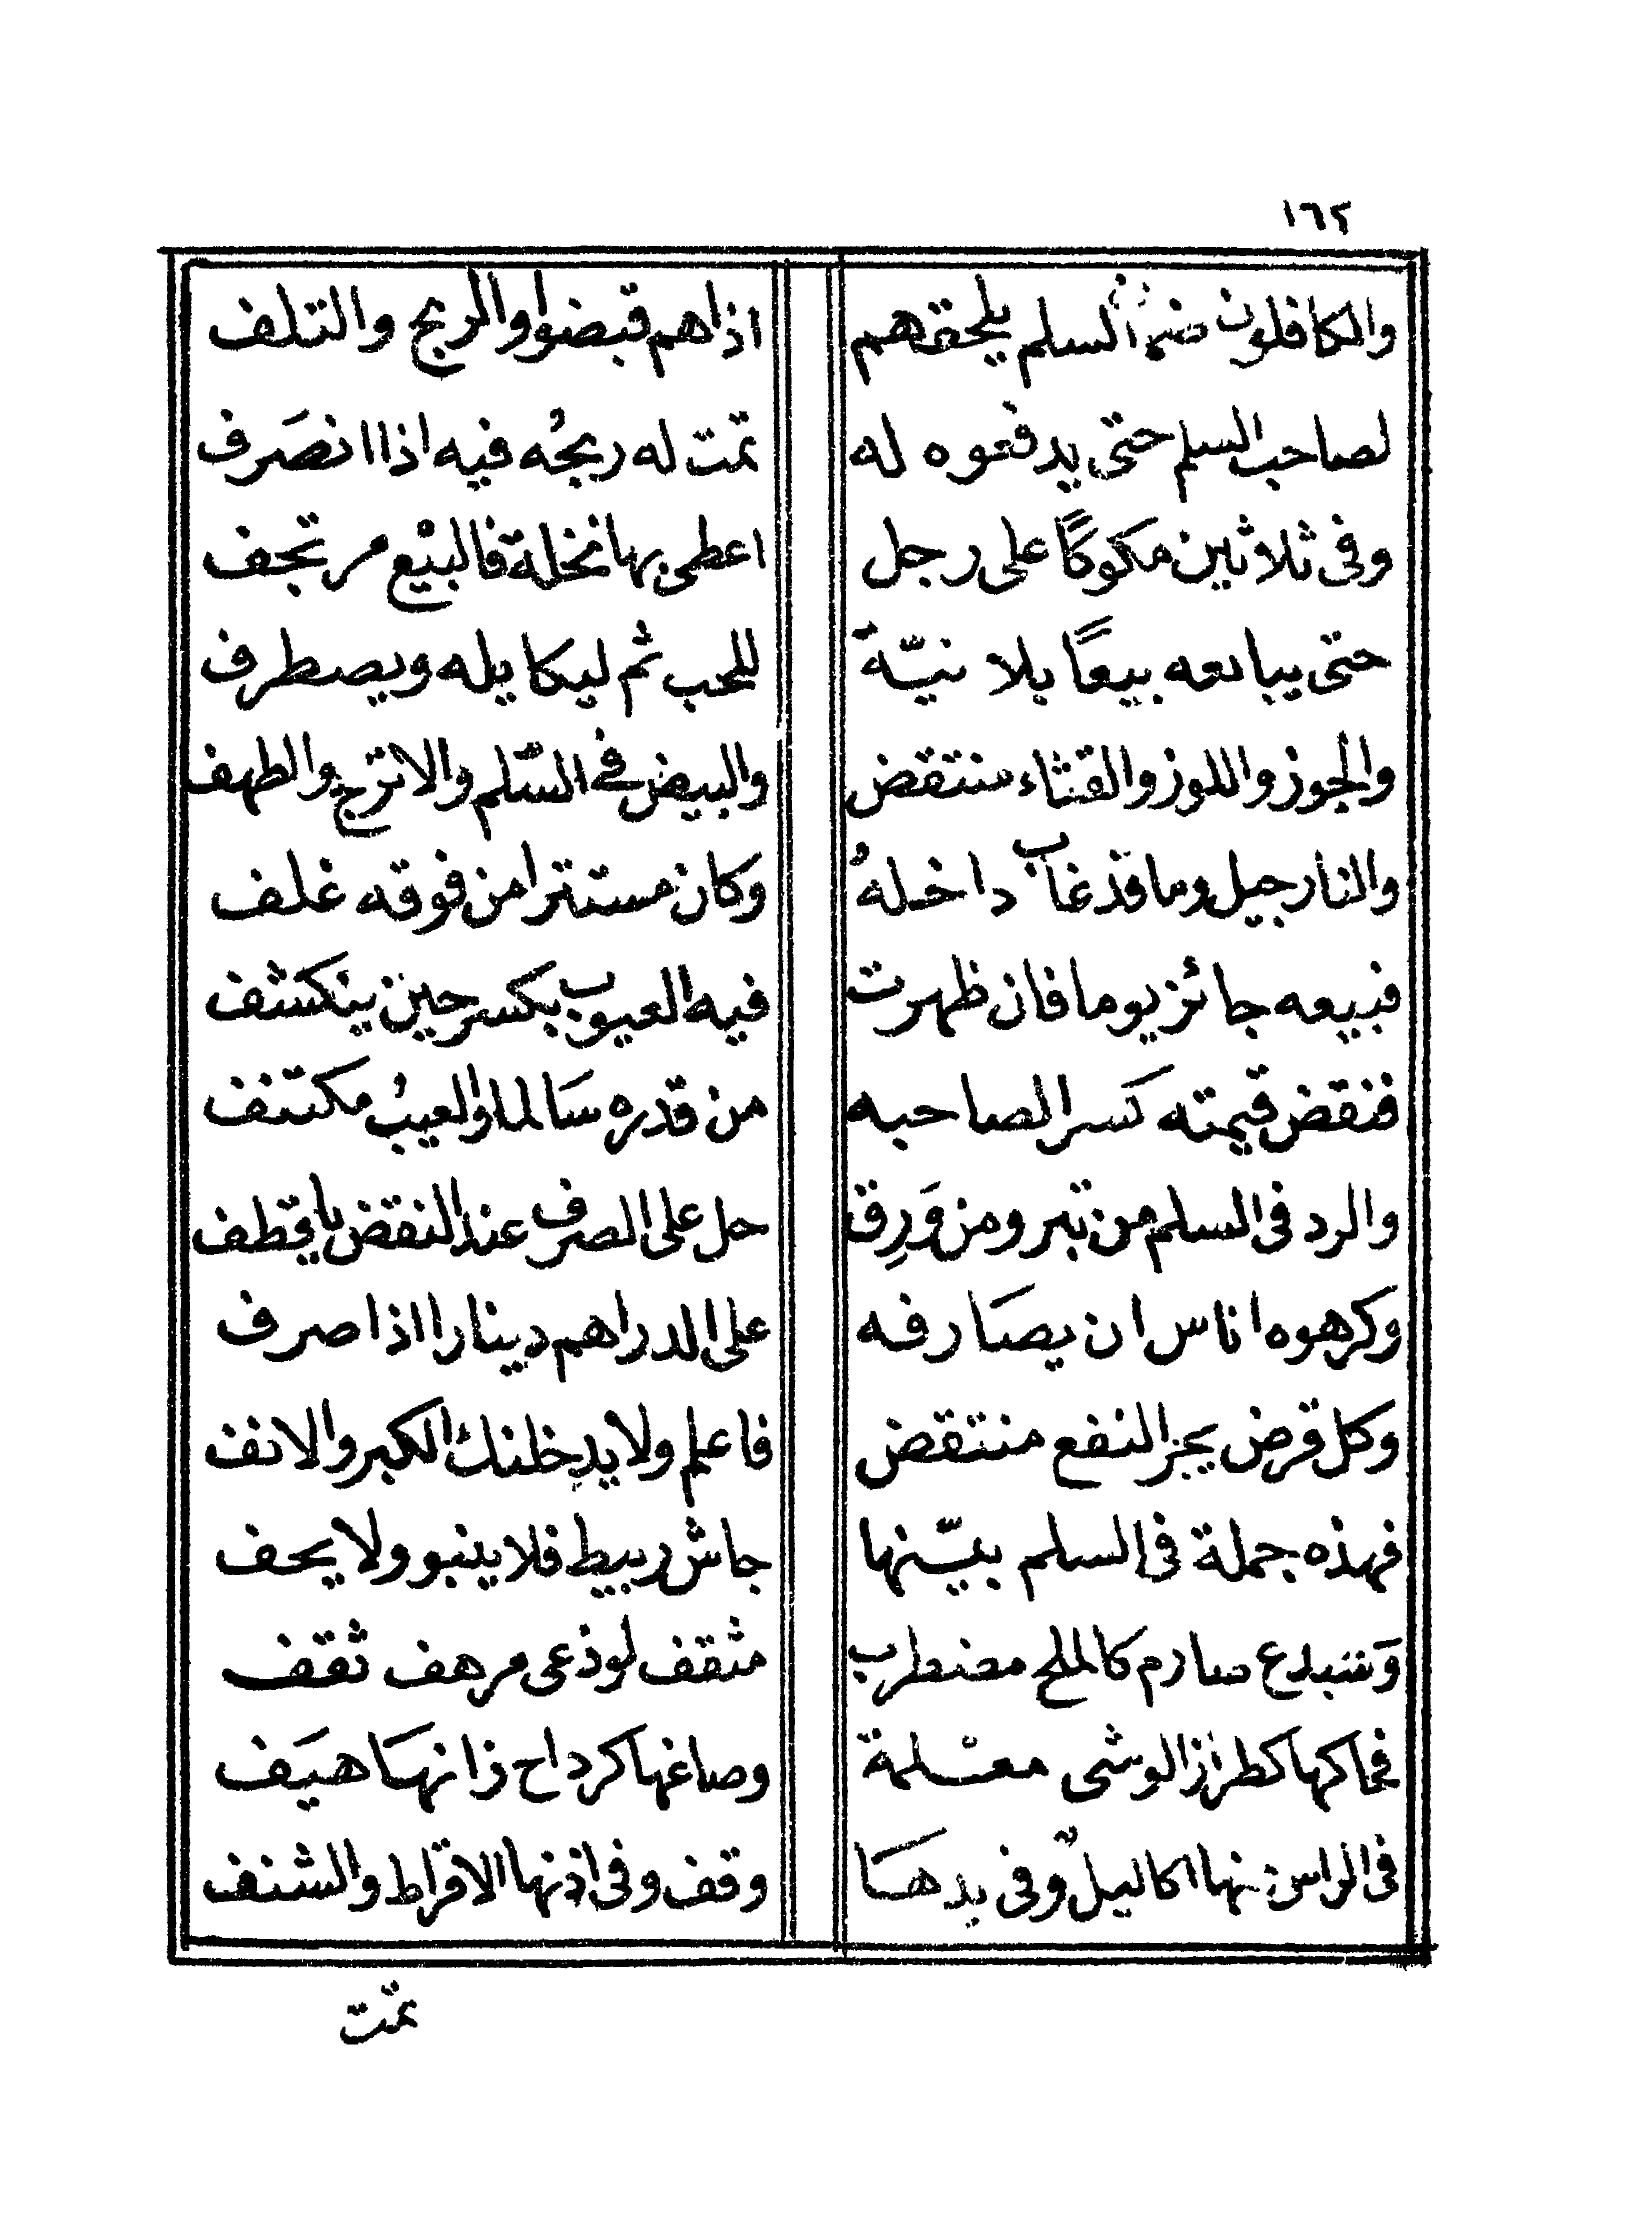 ١٦٢
والكافلون ضمان السلم يلحقهم اذا هم قبضوا والربح والتلف
لصاحب السلم حتى يدفعوه له تمت له ربحُه فيه اذا انصَرف
وفى ثلاثين مكوكًا على رجل اعطى بها نخلة فالبيْع مرتجف
حتى يبايعه بيعًا بلا نيّة للحب ثم ليكايله ويصطرف
والجوز واللوز والقثاء منتقض والبيض في السّلم والاترج والطهف
والنارجيل وما قد غاب داخلهُ وكان مستترا من فوقه غلف
فبيعه جائز يوما فان ظهرت فيه العيوب بكسر حين ينكشف
فنقض قيمته كسر الصاحبه من قدره سَالما والعيبُ مكتنف
والرد فى السلم من تبر ومن وَرِق حل على الصرف عند النقض يا قطف
وكرهوه اناس ان يصَارفه على الدراهم دينارا اذا صرف
وكل قرض يجز النفع منتقض فاعلم ولا يدخلنك الكبر والانف
فهذه جملة فى السلم بيّنها جاش ربيط فلا ينبو ولا يحف
وَمبدع صارم كالملح مضطرب مثقف لوذعى مرهف ثقف
فحاكها كطراز الوشى معْلمة وصاغها كرداح زانهَا هيَف
فى الراس منها اكاليل وفى يدهَا وقف وفى اذنها الاقراط والشنف
تمّت